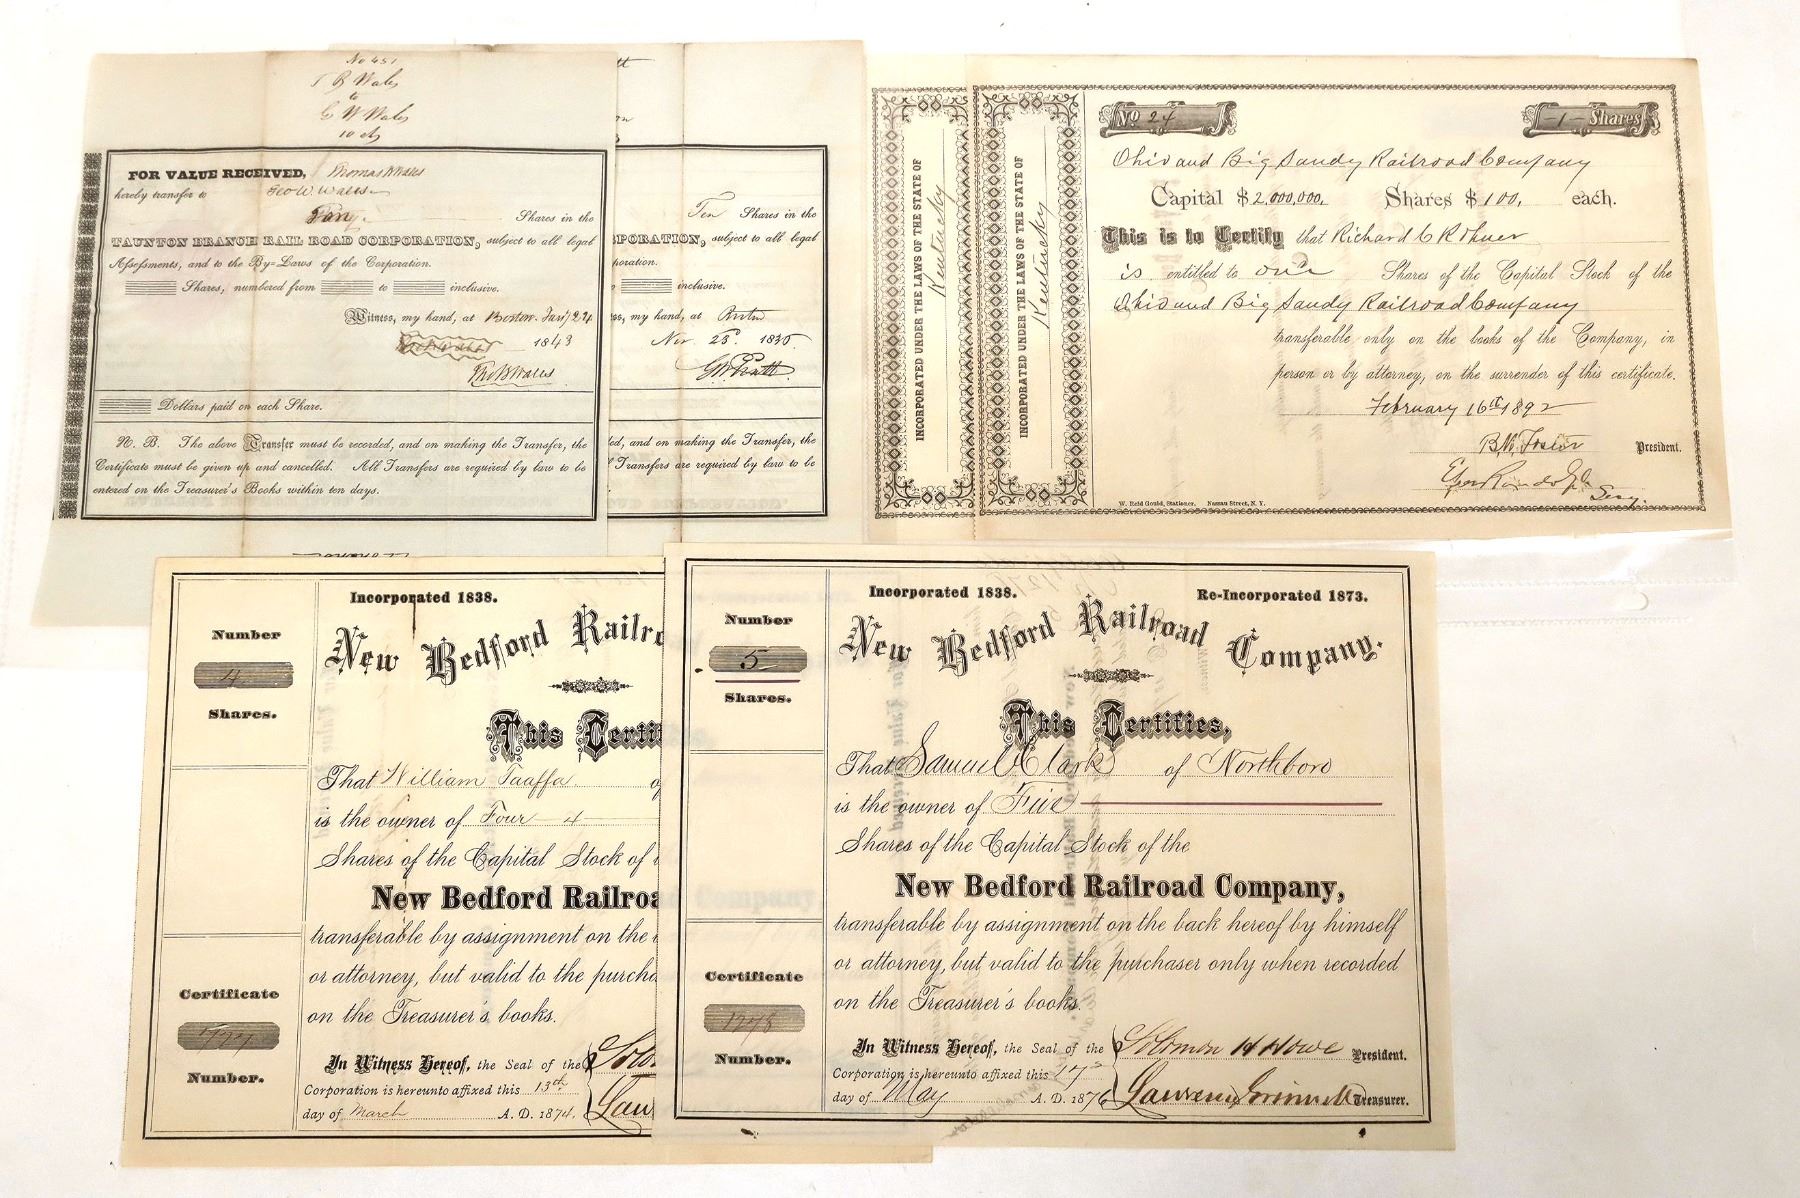 No 451
T B Wales
to
G W Wales
10 sh
FOR VALUE RECEIVED, Thomas B Wales
hereby transfer to Geo W Wales
Ten Shares in the
TAUNTON BRANCH RAIL ROAD CORPORATION, subject to all legal
Assessments, and to the By=Laws of the Corporation.
Shares, numbered from to inclusive.
Witness, my hand, at Boston. Jany 24
1843
Tho B Wales
Dollars paid on each Share.
N. B. The above Transfer must be recorded, and on making the Transfer, the
Certificate must be given up and cancelled. All Transfers are required by law to be
entered on the Treasurer's Books within ten days.
Ten Shares in the
PORATION, subject to all legal
poration.
inclusive.
ss, my hand, at
Nov. 23d. 1835.
G W Pratt
ed, and on making the Transfer, the
Transfers are required by law to be
INCORPORATED UNDER THE LAWS OF THE STATE OF
Kentucky
INCORPORATED UNDER THE LAWS OF THE STATE OF
Kentucky
No 24
-1- Shares
Ohio and Big Sandy Railroad Company
Capital $2,000,000, Shares $100, each.
This is to Certify that Richard C Rohner
is entitled to one Shares of the Capital Stock of the
Ohio and Big Sandy Railroad Company
transferable only on the books of the Company, in
person or by attorney, on the surrender of this certificate.
February 16th 1892
B. W. Foster President.
Epes Randolph Secy.
W. Reid Gould, Stationer, Nassau Street, N. Y.
Number
4
Shares.
Certificate
777
Number.
Incorporated 1838.
New Bedford Railro
This Certif
That William Taaffa o
is the owner of Four 4
Shares of the Capital Stock of t
New Bedford Railroa
transferable by assignment on the
or attorney, but valid to the purcha
on the Treasurer's books.
In Witness Hereof, the Seal of the Solo
Corporation is hereunto affixed this 13th
day of March A. D. 1874. Law
Number
5
Shares.
Certificate
1278
Number.
Incorporated 1838. Re-Incorporated 1873.
New Bedford Railroad Company.
This Certifies,
That Samuel Clark of Northboro
is the owner of Five
Shares of the Capital Stock of the
New Bedford Railroad Company,
transferable by assignment on the back hereof by himself
or attorney, but valid to the purchaser only when recorded
on the Treasurer's books.
In Witness Hereof, the Seal of the Solomon H Howe President.
Corporation is hereunto affixed this 17th
day of May A. D. 1876 Lawrence Grinnell Treasurer.